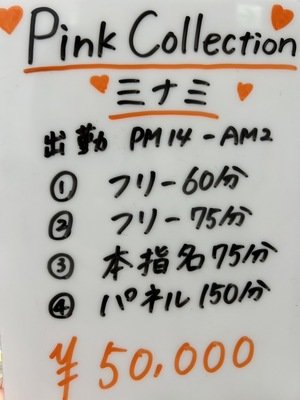 Pink Collection
ミナミ
出勤 PM14-AM2
① フリー60分
② フリー75分
③ 本指名75分
④ パネル150分
¥50,000